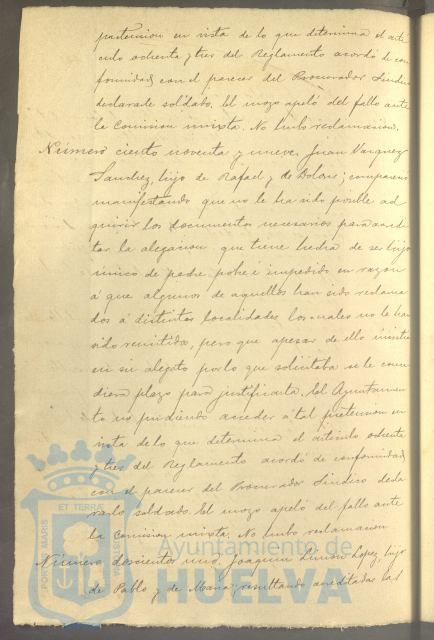 pretension en vista de lo que determina el artí-
culo ochenta y tres del Reglamento acordó de con-
formidad con el parecer del Procurador Sindico
declararle soldado. El mozo apeló del fallo ante
la Comision mixta. No hubo reclamacion.
Número ciento noventa y nueve. Juan Vazquez
Sanchez, hijo de Rafael y de Dolores; compareció
manifestando que no le ha sido posible ad-
quirir los documentos necesarios para acredi-
tar la alegacion que tiene hecha de ser hijo
unico de padre pobre é impedido en razon
á que algunos de aquellos han sido reclama-
dos á distintas localidades los cuales no le han
sido remitidos, pero que apesar de ello insiste
en su alegato por lo que solicitaba se le conce-
diera plazo para justificarla. El Ayuntamien-
to no pudiendo acceder á tal pretension en
vista de lo que determina el articulo ochenta
y tres del Reglamento acordó de conformidad
con el parecer del Procurador Sindico decla-
rarlo soldado. El mozo apeló del fallo ante
la Comision mixta. No hubo reclamacion
Número doscientos uno, Joaquin Limon Lopez, hijo
de Pablo y de Maria; resultando acreditadas las
PORTUS MARIS ET TERRAE
Ayuntamiento de
HUELVA